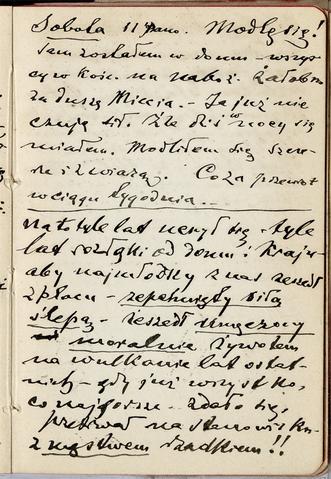 Sobota 11 rano. Modlę się!
Sam zostałem w domu – wszys-
cy w kośc. na naboż. żałobn.
za duszę Miecia. – Ja już nie
czuję sił. Źle dziś w nocy się
miałem. Modliłem się szcze-
rze i z wiarą. Co za przewrót
w ciągu tygodnia. –
na to tyle lat uczył się – tyle
lat rozłąki od domu i kraju –
aby najmłodszy z nas zszedł
z placu – zepchnięty siłą
ślepą – zszedł umęczony
moralnie żywotem
na wulkanie lat ostat-
nich – gdy już wszystko,
co najgorsze – zdało się,
przetrwał na stanowisku
z męstwem rzadkiem!!